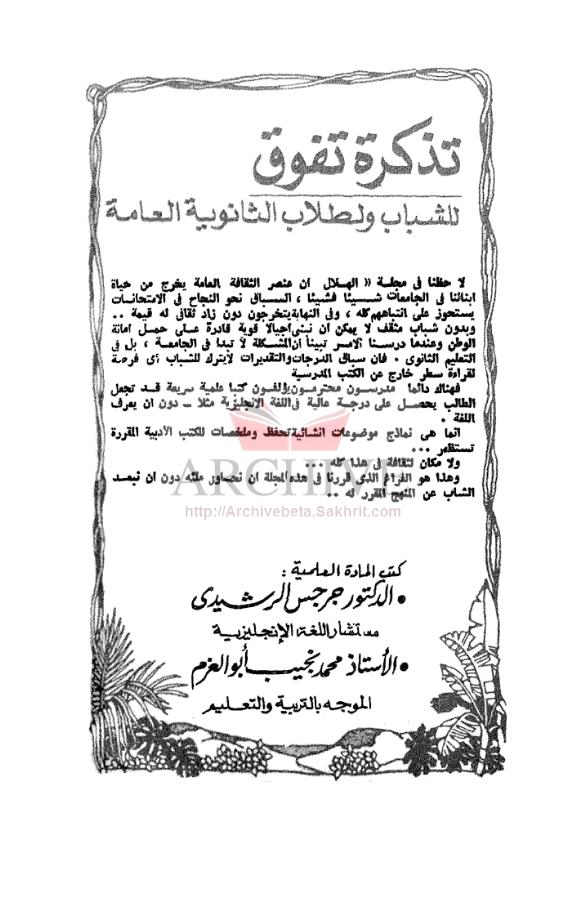 تذكرة تفوق
للشباب ولطلاب الثانوية العامة
لا حظنا فى مجلة « الهلال ان عنصر الثقافة العامة يخرج من حياة
ابنائنا فى الجامعات شسيئا فشيئا ، السسباق نحو النجاح فى الامتحانات
يستحوز على انتباههم كله ، وفى النهاية يتخرجون دون زاد ثقافى له قيمة ..
وبدون شباب مثقف لا يمكن ان نبنى اجيالا قوية قادرة على حمل امانة
الوطن وعندما درسنا الامر تبينا ان المشكلة لا تبدا فى الجامعة ، بل فى
التعليم الثانوى . فان سباق الدرجات والتقديرات لايترك للشباب أى فرصة
لقراءة سطر خارج عن الكتب المدرسية
فهناك دائما مدرسون محترمون يؤلفون كتبا علمية سريعة قد تجعل
الطالب يحصل على درجة عالية فى اللغة الانجليزية مثلا ـ دون ان يعرف
اللغة .
انما هى نماذج موضوعات انشائية تحفظ وملخصات للكتب الأدبية المقررة
تستظهر ...
ولا مكان لثقافة فى هذا كله ...
وهذا هو الفراغ الذى قررنا فى هذه المجلة ان نحاور ملئه دون ان نبعد
الشاب عن المنهج المقرر له ..
ARCHIVE
http://Archivebeta.Sakhrit.com
كتب المادة العلمية :
• الدكتور جرجس الرشيدى
مستشار اللغة الإنجليزية
• الأستاذ محمد نجيب أبو العزم
الموجه بالتربية والتعليم